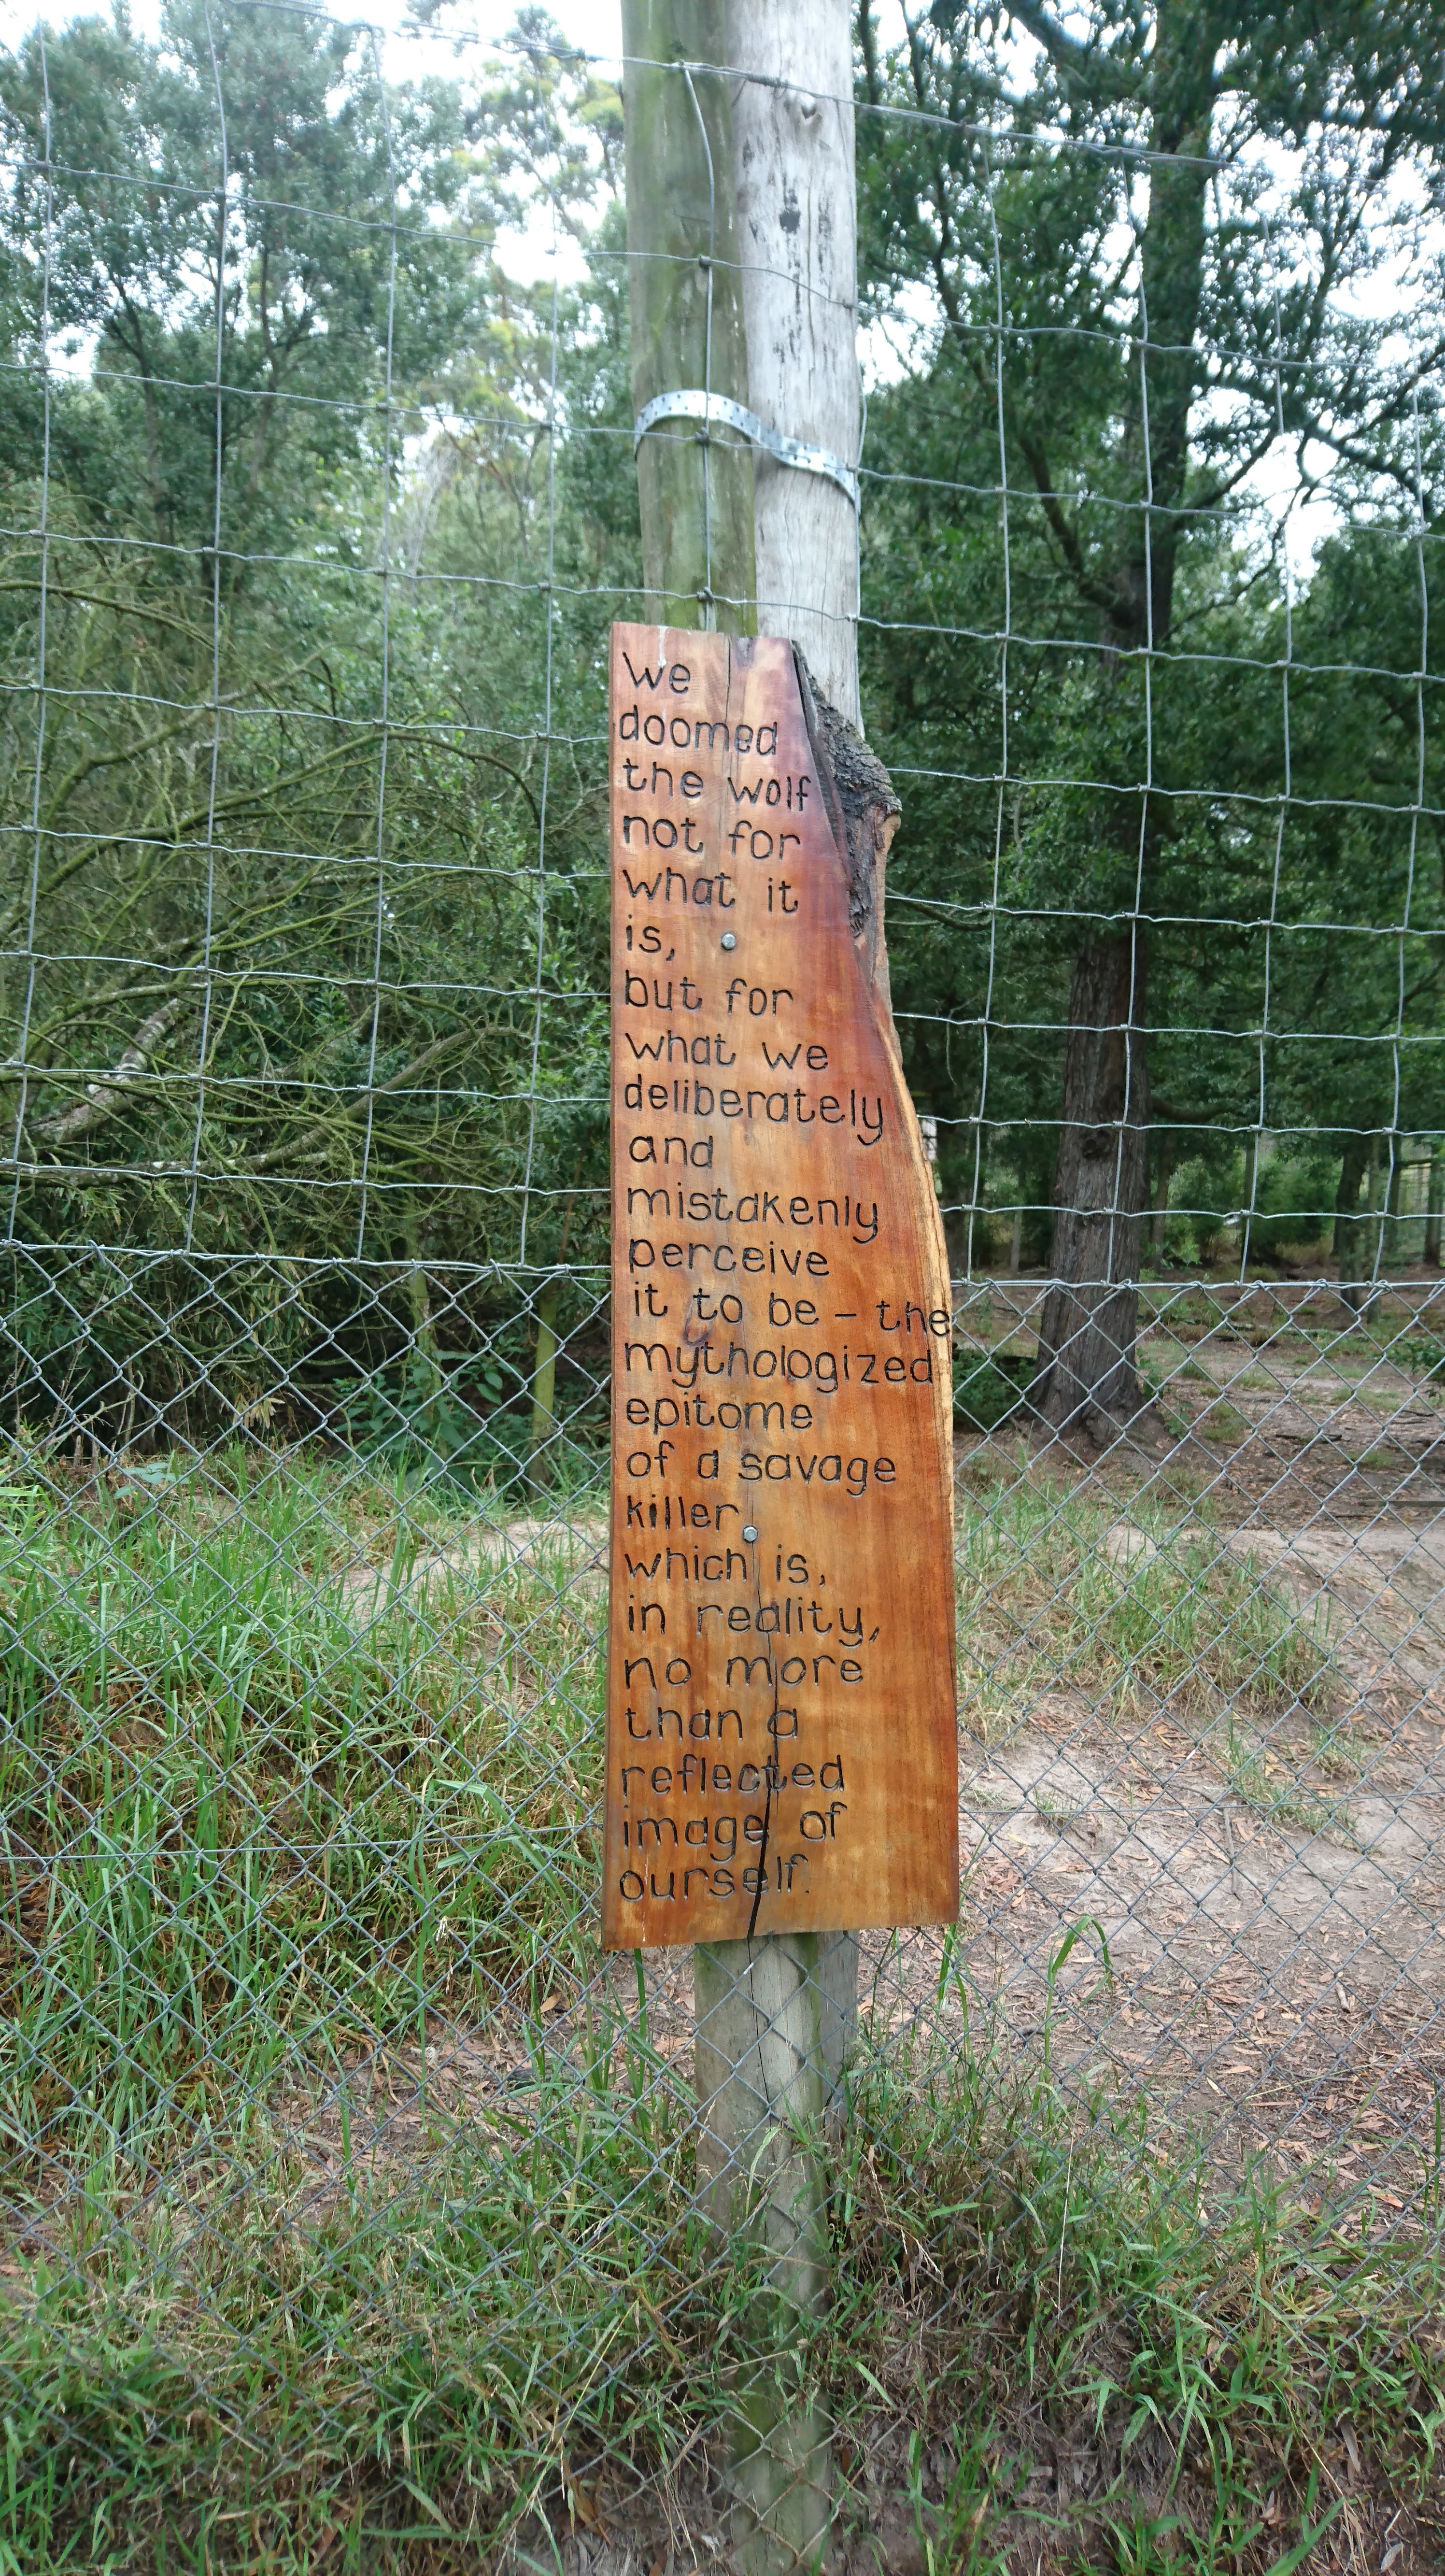 We
doomed
the wolf
not for
what it
is,
but for
what we
deliberately
and
mistakenly
perceive
it to be – the
mythologized
epitome
of a savage
killer
which is,
in reality,
no more
than a
reflected
image of
ourself.